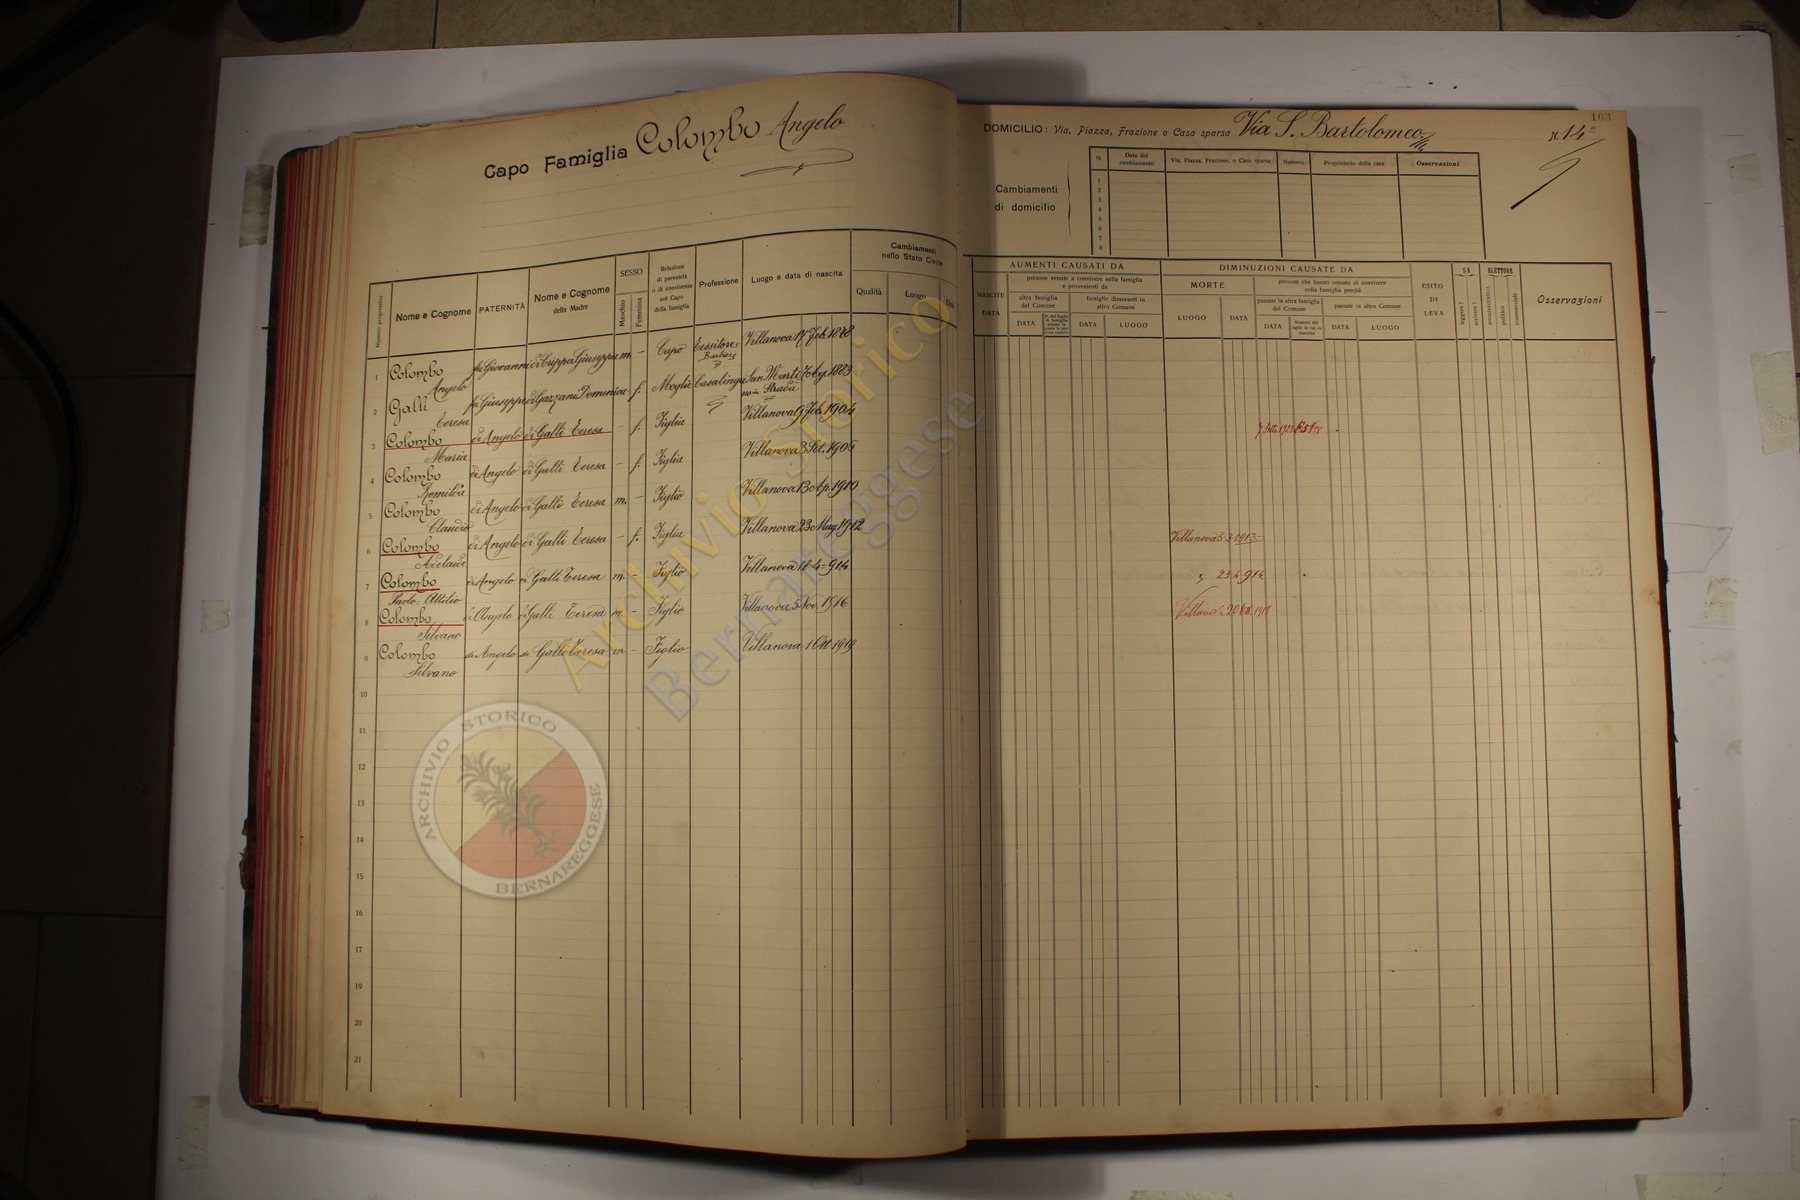 Capo Famiglia Colombo Angelo
DOMICILIO: Via, Piazza, Frazione o Casa sparsa Via S. Bartolomeo
N. 14
163
Cambiamenti
di domicilio
N.
Data del cambiamento
Via, Piazza, Frazione, o Casa sparsa
Numero
Proprietario della casa
Osservazioni
1
2
3
4
5
6
7
8
Numero progressivo
Nome e Cognome
PATERNITÀ
Nome e Cognome
della Madre
SESSO
Maschio
Femmina
Relazione
di parentela
o di convivenza
col Capo
della famiglia
Professione
Luogo e data di nascita
Cambiamenti
nello Stato Civile
Qualità
Luogo
Data
NASCITE
DATA
AUMENTI CAUSATI DA
persone venute a convivere nella famiglia
e provenienti da
altra famiglia
del Comune
famiglie dimoranti in
altro Comune
DATA
DATA
LUOGO
DIMINUZIONI CAUSATE DA
MORTE
LUOGO
DATA
persone che hanno cessato di convivere
colla famiglia perchè
passate in altra famiglia
del Comune
passate in altro Comune
DATA
DATA
LUOGO
ESITO
DI
LEVA
SA
leggere?
scrivere?
ELETTORE
amministrativo
politico
commerciale
Osservazioni
1 Colombo Angelo fu Giovanni di Crippa Giuseppa m. – Capo Tessitore Barbiere Villanova 17 Feb. 1878
2 Galli Teresa fu Giuseppe di Gazzani Domenica f. Moglie Casalinga San Marti no in Strada 7bre 1883
3 Colombo Maria di Angelo di Galli Teresa – f. Figlia Villanova 9 Feb. 1904
4 Colombo Romilda di Angelo di Galli Teresa – f. Figlia Villanova 3 Set. 1906
5 Colombo Claudio di Angelo di Galli Teresa m. – Figlio Villanova 13 Ap. 1910
6 Colombo Adelaide di Angelo di Galli Teresa – f. Figlia Villanova 23 Mag. 1912 Villanova 3-3-1913
7 Colombo Paolo-Attilio di Angelo di Galli Teresa m. – Figlio Villanova 18-4-914 " 23-4-914
8 Colombo Silvano di Angelo di Galli Teresa m – Figlio Villanova 5 Nov. 1916 Villanova 20 Ott. 1918
9 Colombo Silvano di Angelo di Galli Teresa m – Figlio Villanova 1 Ott 1919
10
11
12
13
14
15
16
17
18
19
20
21
Archivio Storico
Bernareggese
ARCHIVIO STORICO
BERNAREGGESE